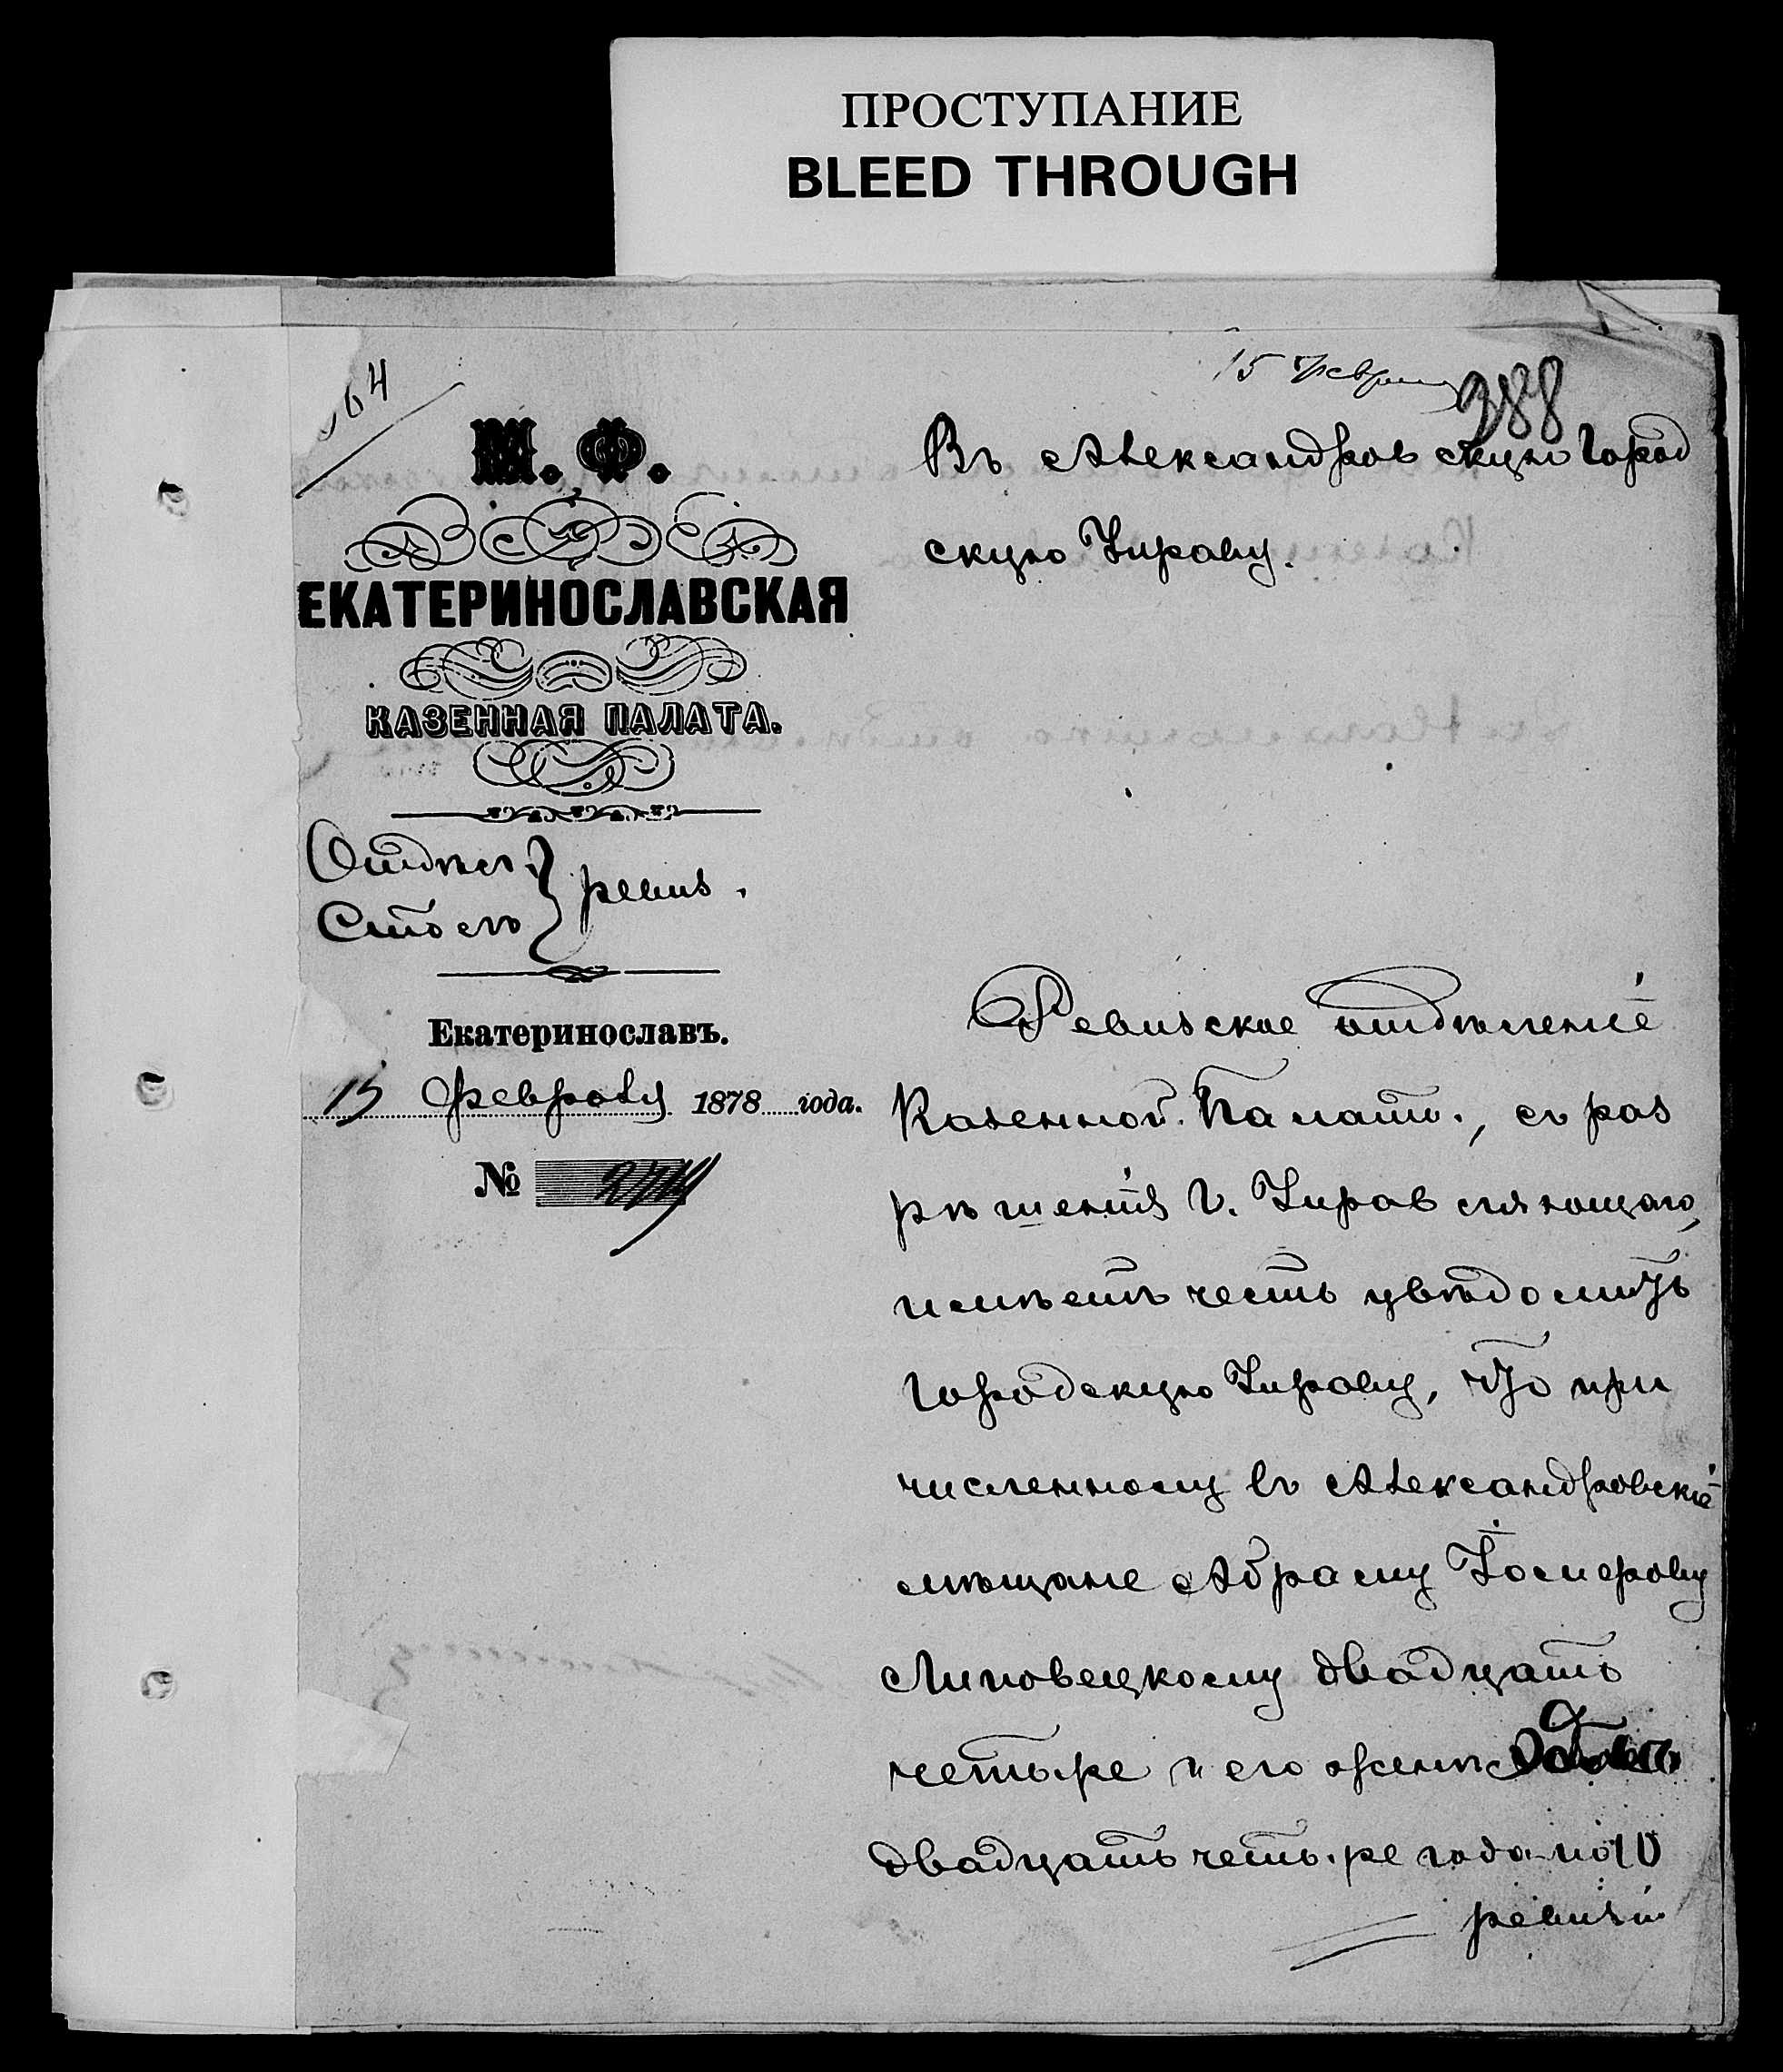 ПРОСТУПАНИЕ
BLEED THROUGH
64
15 февраля
388
М. Ф.
ЕКАТЕРИНОСЛАВСКАЯ
КАЗЕННАЯ ПАЛАТА.
Отдѣл.
Столъ
ревиз.
Екатеринославъ.
15 февраля 1878 года.
№
Въ Александровскую Город
скую Управу.
Ревизское отдѣленіе
Казенной Палаты, съ раз
рѣшенія Г. Управляющаго,
имѣетъ честь увѣдомить
Городскую Управу, что при
численному въ Александровскіе
мѣщане Абраму Іосифову
Липовецкому двадцать
четыре и его женѣ
двадцать четыре года по 10
ревизіи